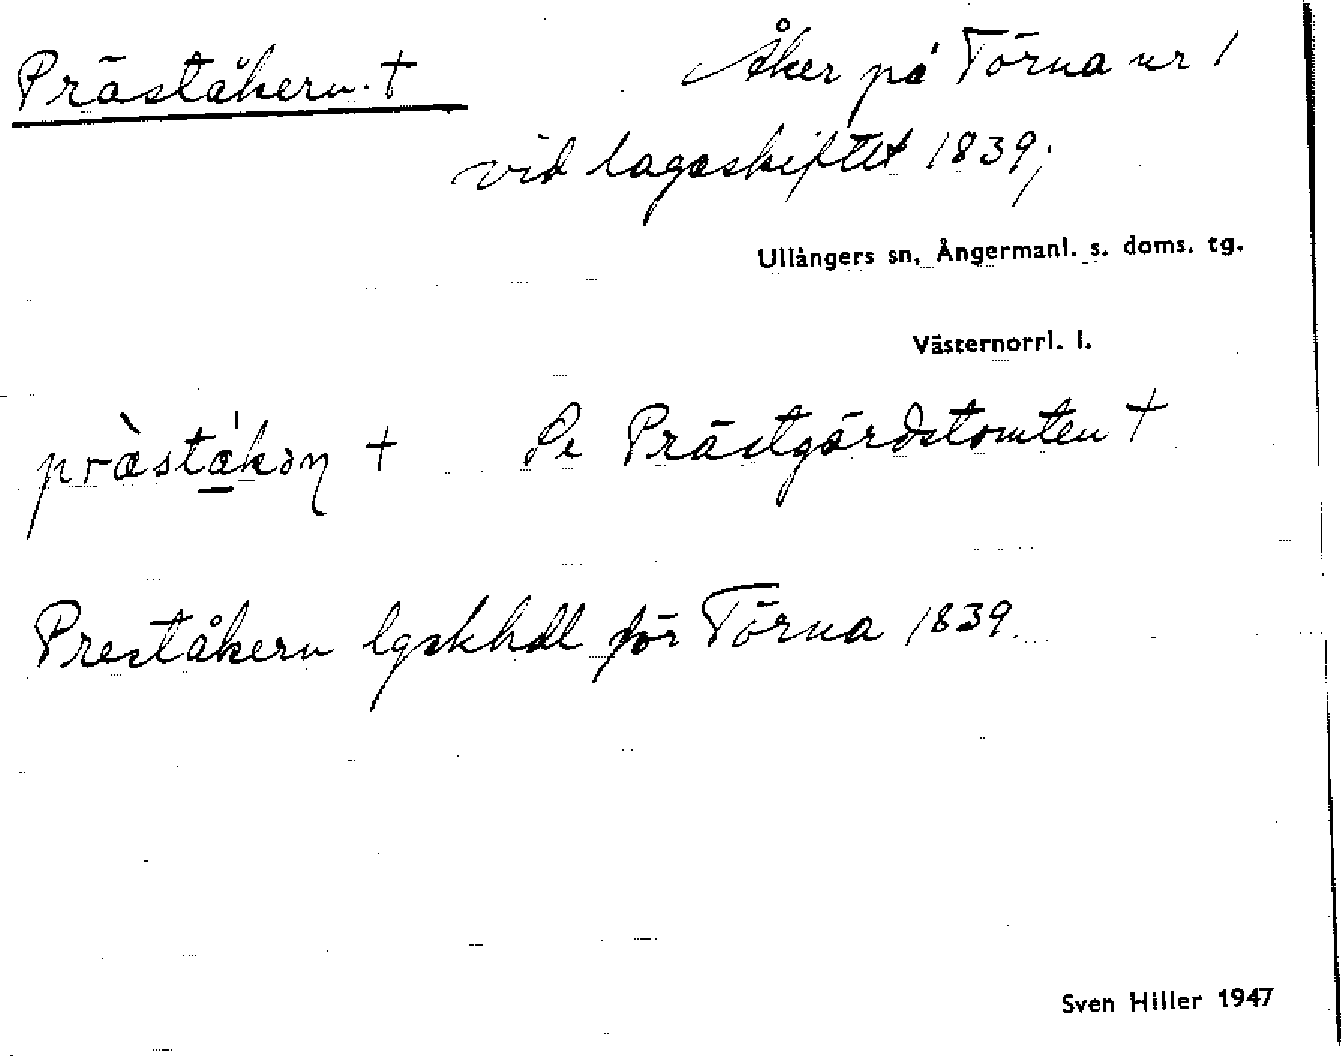 Präståkern. † Åker på Törna nr 1
vid lagaskiftet 1839;
Ullångers sn, Ångermanl. s. doms. tg.
Västernorrl. l.
pràstákən † Se Prästgårdstomten †
Preståkern lgskhdl för Törna 1839
Sven Hiller 1947